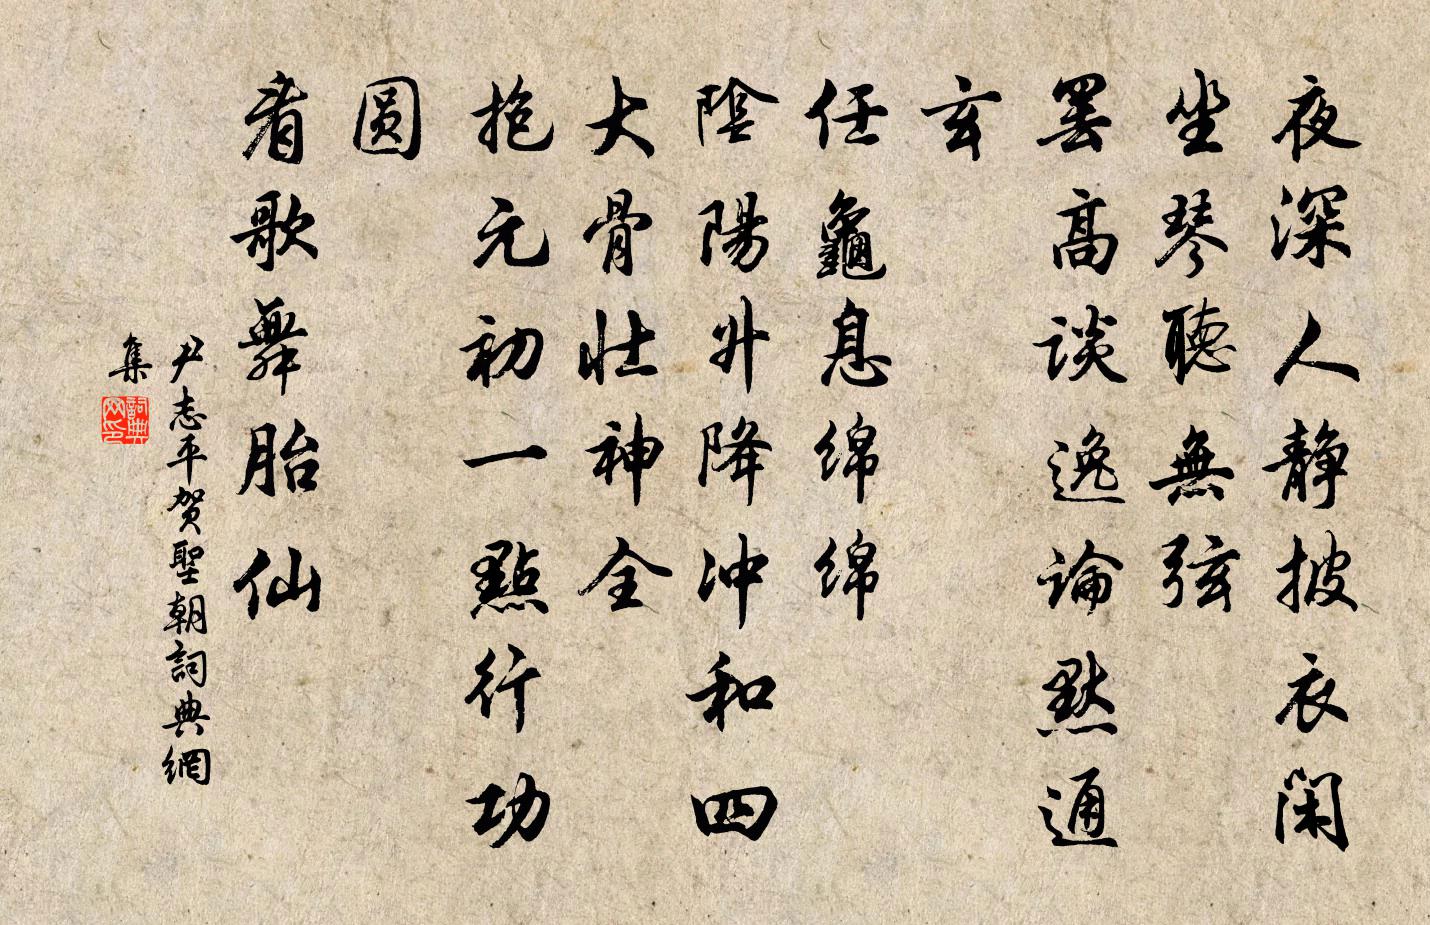 夜深人静披衣闲
坐琴聽無弦
罢高談逸論默通
玄
任龜息绵绵
陰陽升降冲和四
大骨壮神全
抱元初一點行功
圆
看歌舞胎仙
尹志平贺聖朝詞典網
集
詞典
网印